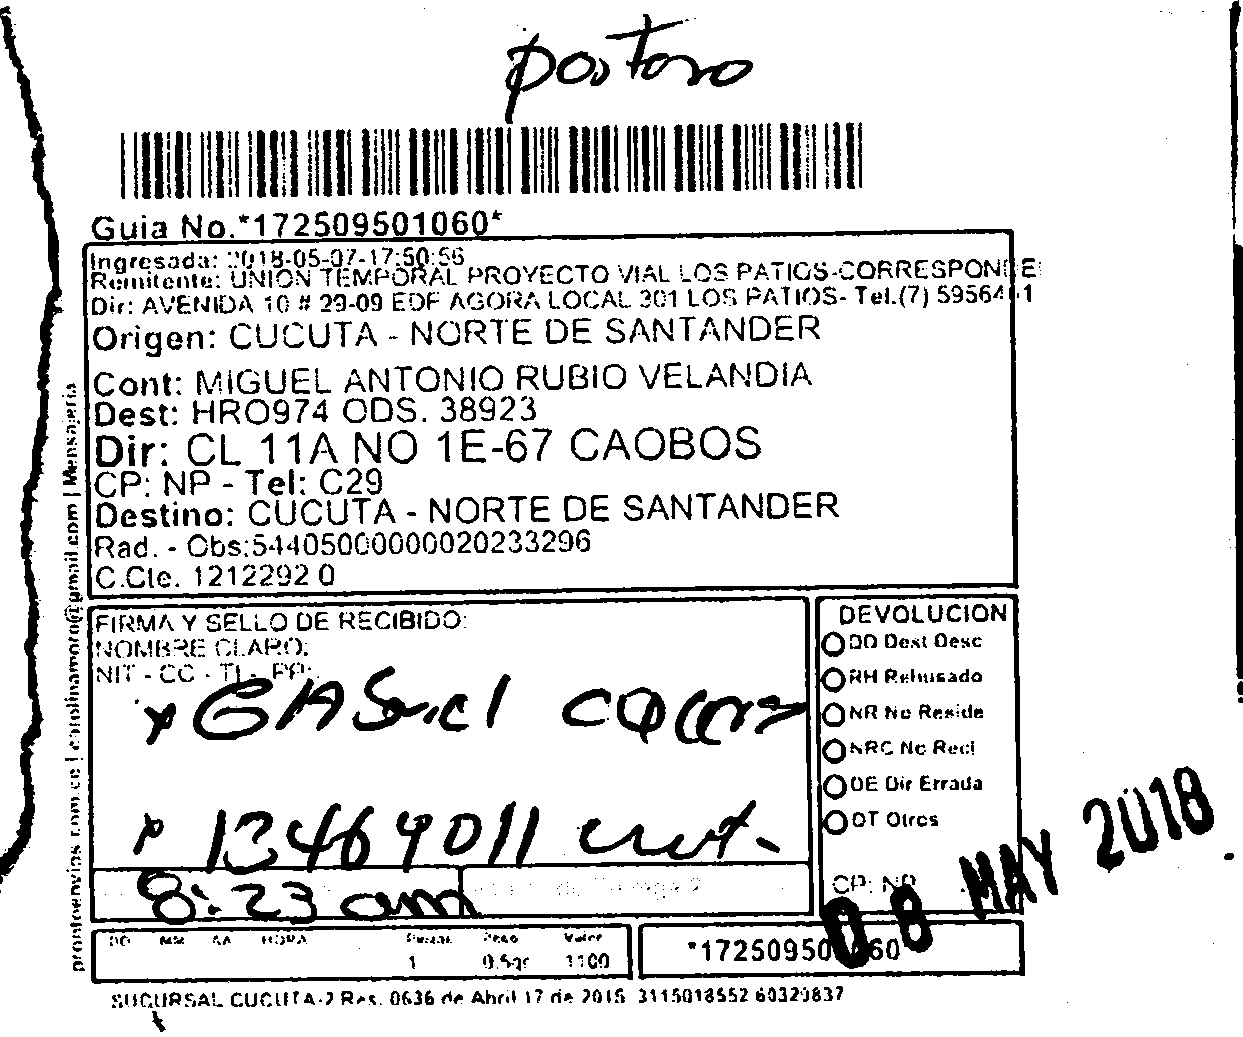 Guia No.*172509501060*
Ingresada: 2018-05-07-17:50:56
Remitente: UNION TEMPORAL PROYECTO VIAL LOS PATIOS-CORRESPONDE
Dir: AVENIDA 10 # 29-09 EDF AGORA LOCAL 301 LOS PATIOS- Tel.(7) 59564 1
Origen: CUCUTA - NORTE DE SANTANDER
Cont: MIGUEL ANTONIO RUBIO VELANDIA
Dest: HRO974 ODS. 38923
Dir: CL 11A NO 1E-67 CAOBOS
CP: NP - Tel: C29
Destino: CUCUTA - NORTE DE SANTANDER
Rad. - Obs:54405000000020233296
C.Cte. 1212292 0
FIRMA Y SELLO DE RECIBIDO:
NOMBRE CLARO:
NIT - CC - TI - PP:
13469011
8:23 am
DEVOLUCION
DD Dest Desc
RH Rehusado
NR No Reside
NRC No Recl
DE Dir Errada
OT Otros
CP: NP
08 MAY 2018
DD MM AA HORA Peso Valor
1 0.5gr 1100
*172509501060*
SUCURSAL CUCUTA-2 Res. 0636 de Abril 17 de 2015 3115018552 60320837